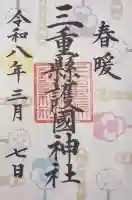 春暖
三重縣護國神社
令和八年三月七日